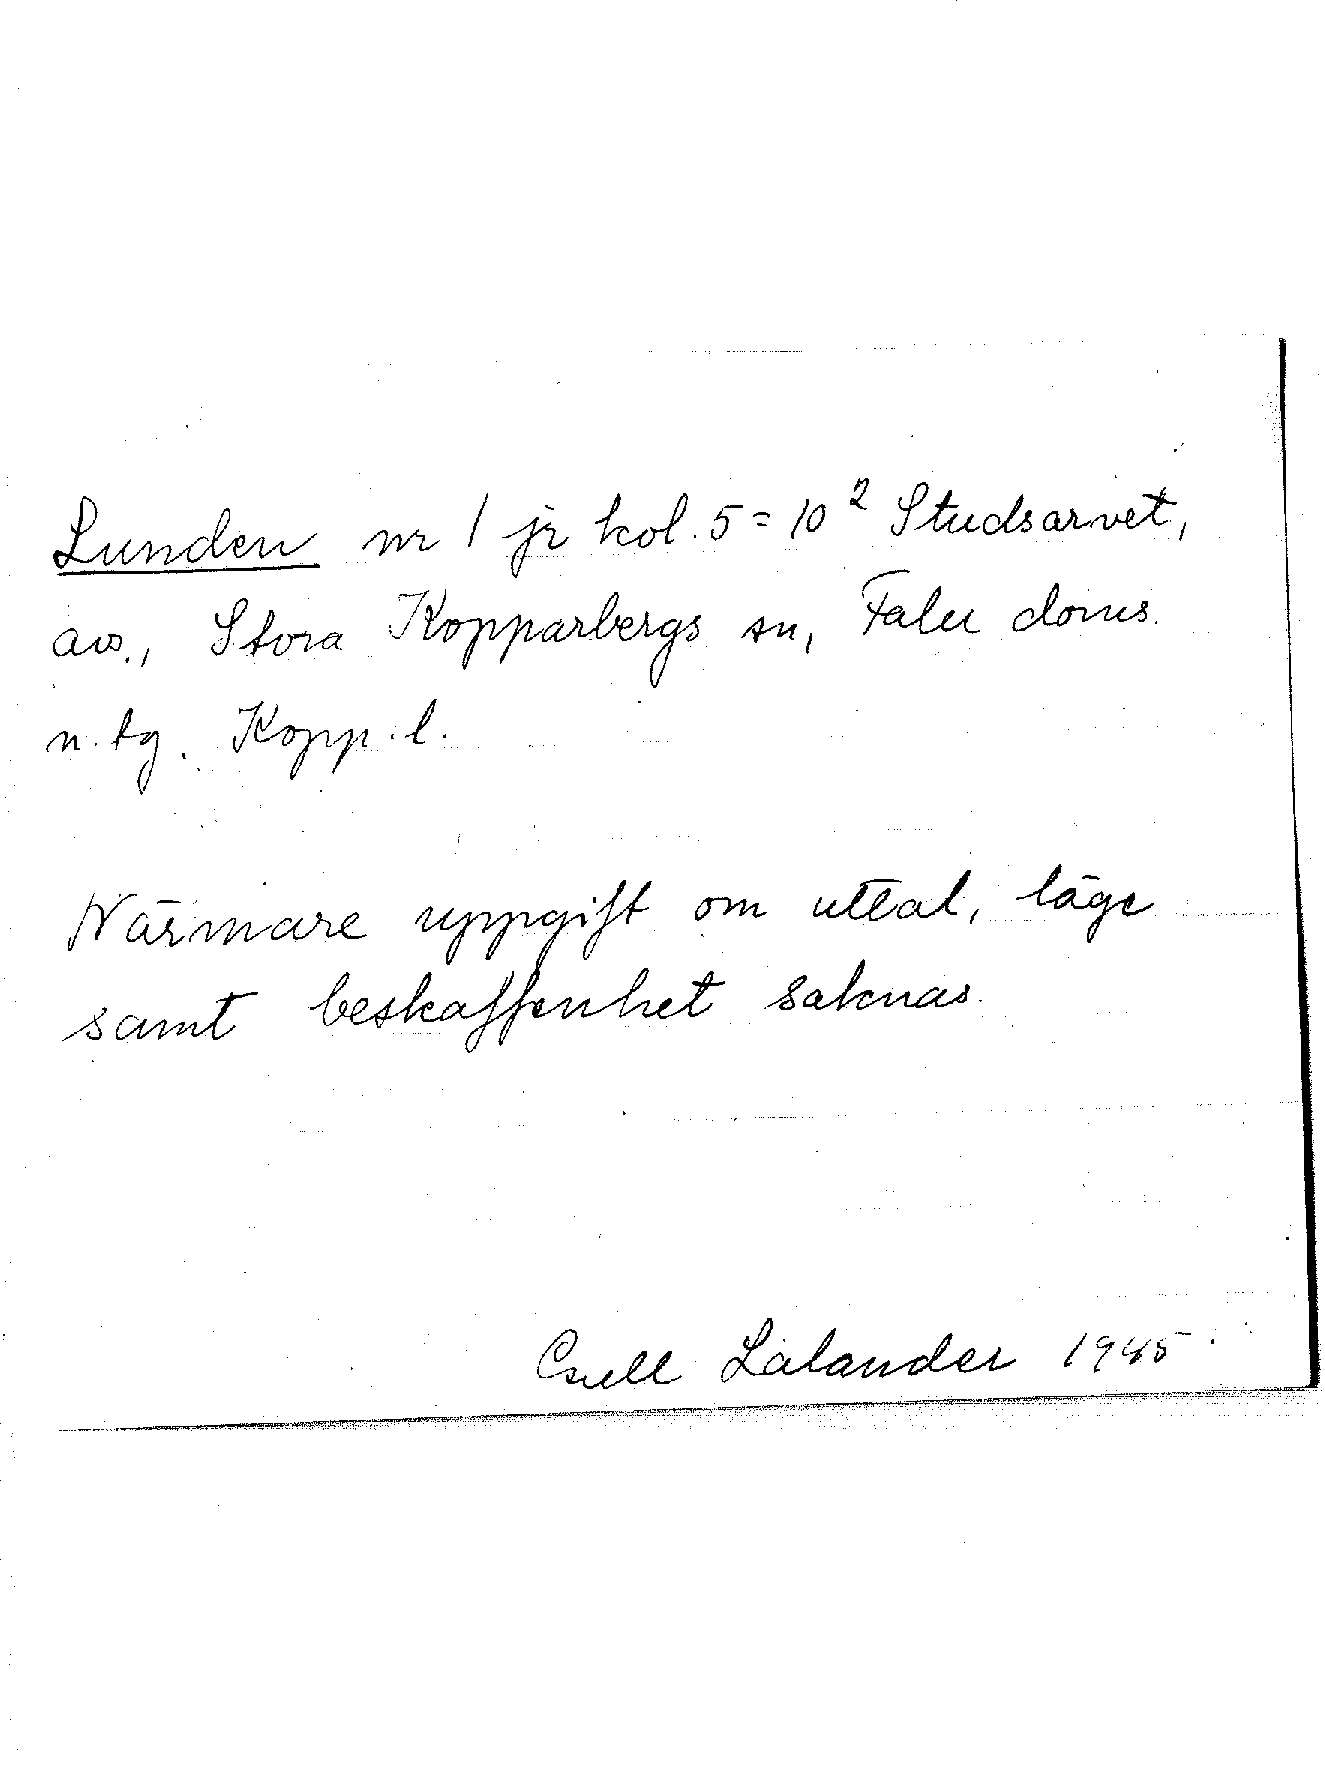 Lunden nr 1 jr kol. 5 = 10² Studsarvet,
avs., Stora Kopparbergs sn, Falu doms.
n. tg. Kopp. l.
Närmare uppgift om uttal, läge
samt beskaffenhet saknas.
Lälander 1945